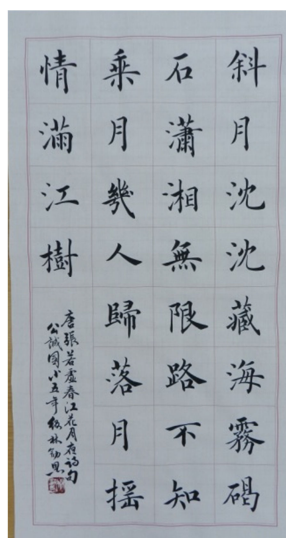 斜月沈沈藏海霧碣
石瀟湘無限路不知
乘月幾人歸落月搖
情滿江樹
唐張若虛春江花月夜詩句
公誠國小五年級林劭恩